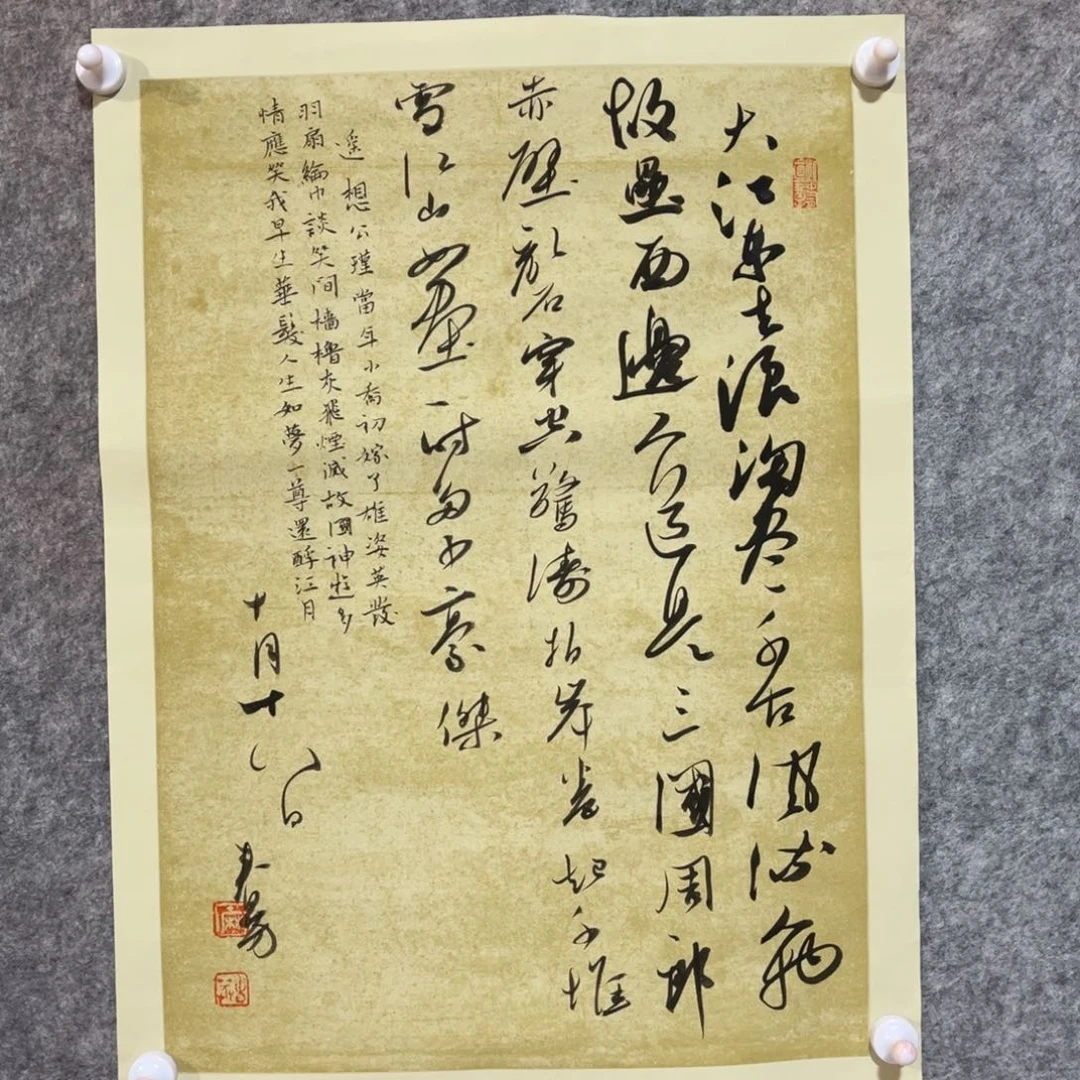 大江東去浪淘盡千古風流人物
故壘西邊人道是三國周郎
赤壁亂石穿空驚濤拍岸卷起千堆
雪江山如畫一時多少豪傑
遙想公瑾當年小喬初嫁了雄姿英發
羽扇綸巾談笑間檣櫓灰飛煙滅故國神遊多
情應笑我早生華髮人生如夢一尊還酹江月
十月十八日